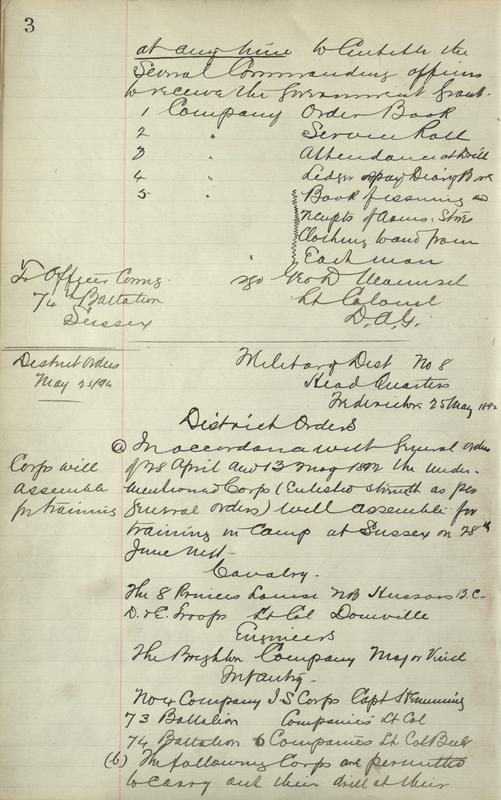 3
at any time to Entitle the
Several Commanding officers
to receive the Government Grant.
1 Company Order Book
2 " Service Roll
3 " Attendance at Drill
4 " Ledger or pay Diary Book
5 " Book of issuing and
receipts of Arms, Stores
Clothing to and from
Each man
To Officer Comng.
74th Battalion
Sussex
sgd Geo D Maunsel
Lt Colonel
D.A.G.
District Orders
May 25/92
Military Dist No 8
Head Quarters
Fredericton 25 May 1892
District Orders
Corps will
assemble
for training
(a) In accordance with General Orders
of 28 April and 13 May 1892 the under-
mentioned Corps (Enlisted strength as per
General orders) will assemble for
training in Camp at Sussex on 28th
June next-
Cavalry.
The 8 Princess Louise NB Hussars B.C.
D. & E. Troops Lt Col Domville
Engineers
The Brighton Company Major Vince
Infantry.
No 4 Company I S Corps Capt Hemming
73 Battalion Companies Lt Col
74 Battalion 6 Companies Lt Col Beer
(b) The following Corps are permitted
to carry out their drill at their